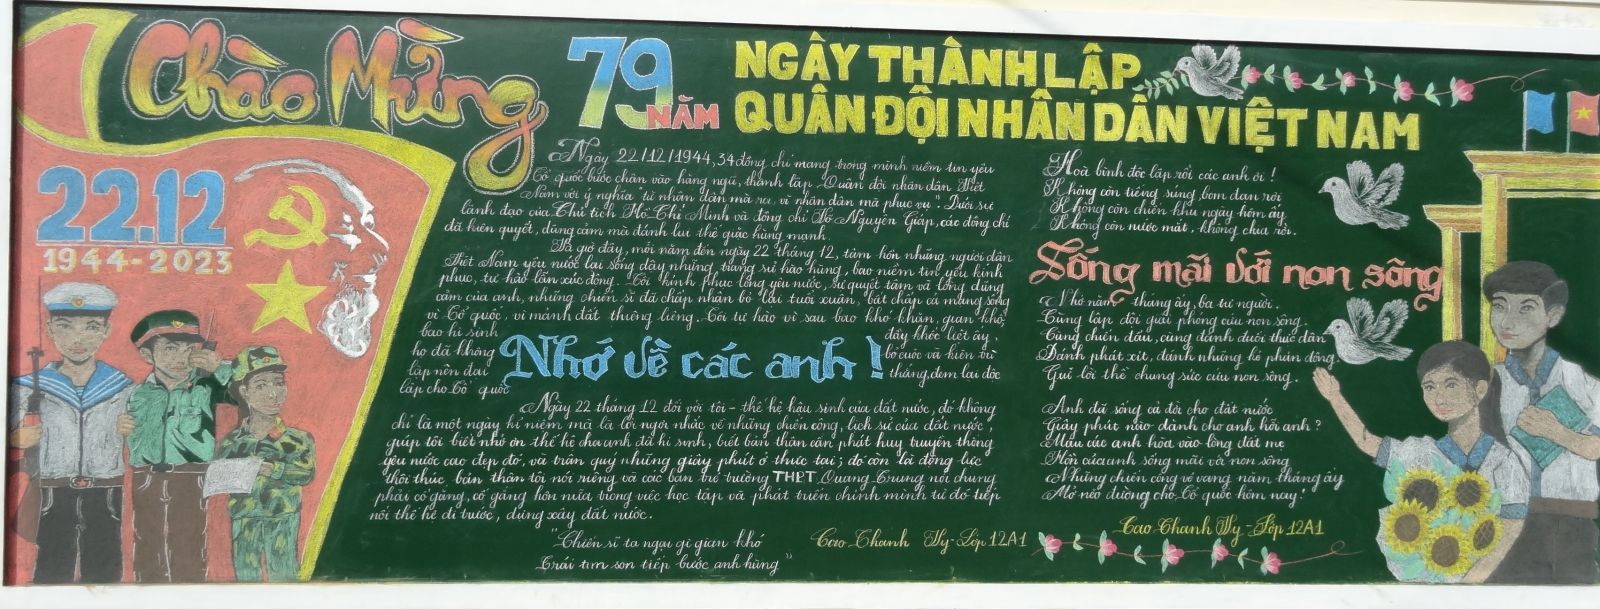 Chào Mừng
79 NĂM
NGÂY THÀNH LẬP
QUÂN ĐỘI NHÂN DÂN VIỆT NAM
22.12
1944-2023
Ngày 22/12/1944, 34 đồng chí mang trong mình niềm tin yêu
Tổ quốc bước chân vào hàng ngũ, thành lập Quân đội nhân dân Việt
Nam với ý nghĩa "từ nhân dân mà ra, vì nhân dân mà phục vụ". Dưới sự
lãnh đạo của Chủ tịch Hồ Chí Minh và đồng chí Võ Nguyên Giáp, các đồng chí
đã kiên quyết, dũng cảm mà đánh lui thế giặc hùng mạnh.
Từ giờ đây, mỗi năm đến ngày 22 tháng 12, tâm hồn những người dân
Việt Nam yêu nước lại sống dậy những trang sử hào hùng, bao niềm tin yêu kính
phục, tự hào lẫn xúc động. Tôi kính phục lòng yêu nước, sự quyết tâm và lòng dũng
cảm của anh, những chiến sĩ đã chấp nhận bỏ lại tuổi xuân, bất chấp cả mạng sống
vì Tổ quốc, vì mảnh đất thiêng liêng. Tôi tự hào vì sau bao khó khăn, gian khổ,
bao hi sinh đầy khốc liệt ấy,
họ đã không bỏ cuộc và kiên trì
lập nên đại thắng, đem lại độc
lập cho Tổ quốc
Nhớ về các anh!
Ngày 22 tháng 12 đối với tôi - thế hệ hậu sinh của đất nước, đó không
chỉ là một ngày kỉ niệm mà là lời ngợi nhắc về những chiến công, lịch sử của đất nước,
giúp tôi biết nhớ ơn thế hệ cha anh đã hi sinh, biết bản thân cần phát huy truyền thống
yêu nước cao đẹp đó, và trân quý những giây phút ở thực tại; đó còn là động lực
thôi thúc bản thân tôi nói riêng và các bạn trẻ trường THPT Quang Trung nói chung
phải cố gắng, cố gắng hơn nữa trong việc học tập và phát triển chính mình từ đó tiếp
nối thế hệ đi trước, dựng xây đất nước.
"Chiến sĩ ta ngại gì gian khó
Trái tim son tiếp bước anh hùng"
Cao Thanh Vy - Lớp 12A1
Hoà bình độc lập rồi các anh ơi!
Không còn tiếng súng bom đạn rơi
Không còn chiến khu ngày hôm ấy
Không còn nước mắt, không chia rời.
Sống mãi với non sông
Nhớ năm tháng ấy, ba tư người.
Cùng lập đội giải phóng cứu non sông.
Cùng chiến đấu, cùng đánh đuổi thực dân
Đánh phát xít, đánh những kẻ phản động.
Gửi lời thề chung sức cứu non sông.
Anh đã sống cả đời cho đất nước
Giây phút nào dành cho anh hỡi anh?
Máu các anh hòa vào lòng đất mẹ
Hồn của anh sống mãi và non sông
Những chiến công vẻ vang năm tháng ấy
Mở nẻo đường cho Tổ quốc hôm nay!
Cao Thanh Vy - Lớp 12A1